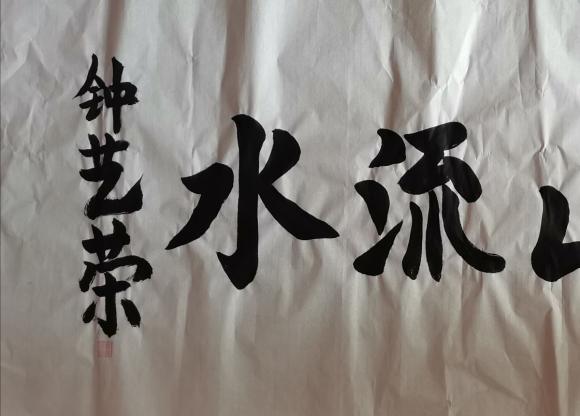 流水
钟艺荣